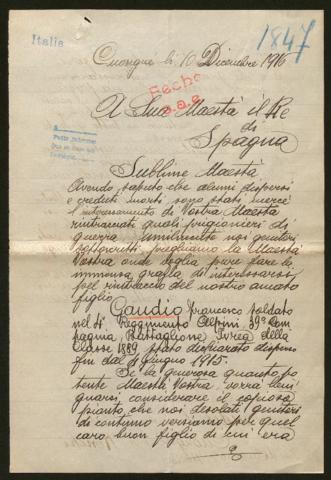 Italia
1847
Cuorgnè li 10 Dicembre 1916
Fecho
A Sua Maestà il Re
di
Spagna
Sublime Maestà
Avendo saputo che alcuni dispersi
e creduti morti sono stati mercè
l'interessamento di Vostra Maestà
rintracciati quali prigionieri di
guerra umilmente noi genitori
sottoscritti preghiamo la Maestà
Vostra onde voglia pure fare la
immensa grazia di interessarsi
pel rintraccio del nostro amato
figlio
Gaudio Francesco soldato
nel 4° Reggimento Alpini 39a Com
pagnia Battaglione Ivrea della
Classe 1889 stato dichiarato disperso
fin dal Giugno 1915.
Se la generosa quanto po
tente Maestà Vostra vorrà beni
quarsi considerare il copioso
pianto che noi desolati genitori
di continuo versiamo per quel
caro buon figlio di cui era